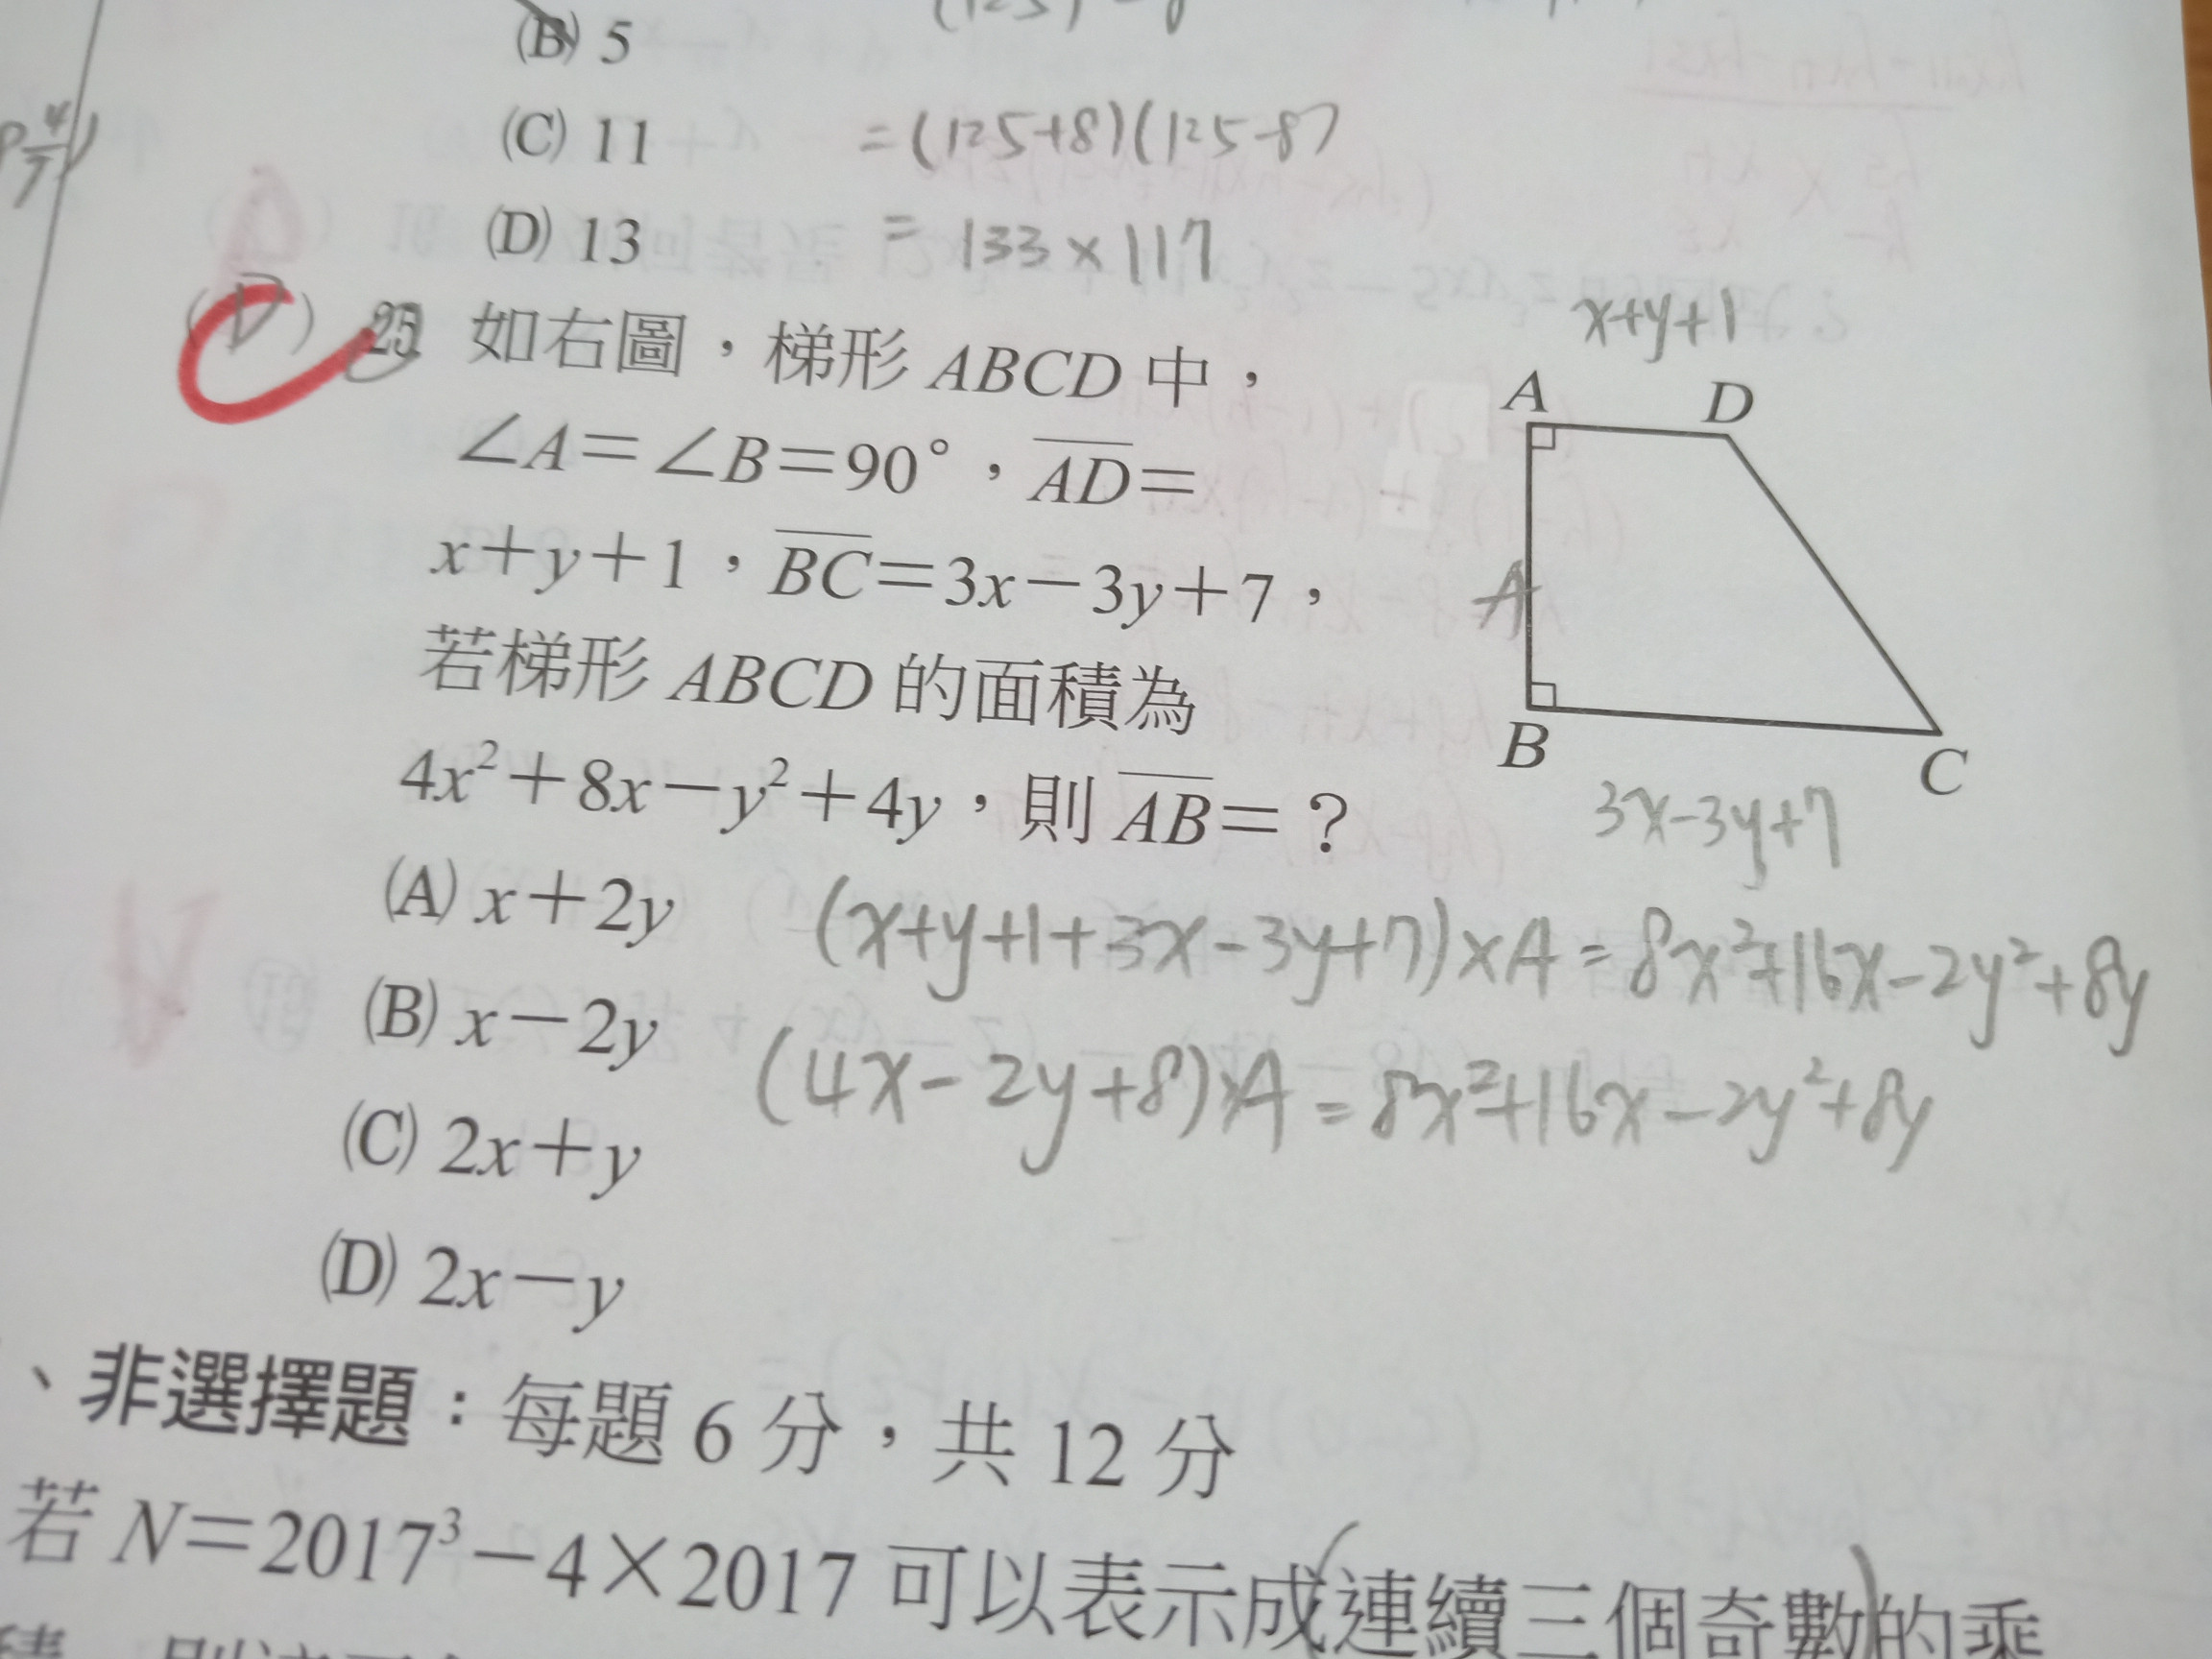 (B) 5
(C) 11 =(125+8)(125-8)
(D) 13 = 133×117
(D) 25 如右圖，梯形 ABCD 中，
∠A＝∠B＝90°，AD＝
x＋y＋1，BC＝3x－3y＋7，
若梯形 ABCD 的面積為
4x²＋8x－y²＋4y，則 AB＝？
x+y+1
A D
A
B C
3x-3y+7
(A) x＋2y (x+y+1+3x-3y+7)×A=8x²+16x-2y²+8y
(B) x－2y (4x-2y+8)×A=8x²+16x-2y²+8y
(C) 2x＋y
(D) 2x－y
、非選擇題：每題 6 分，共 12 分
若 N＝2017³－4×2017 可以表示成(連續三個奇數)的乘